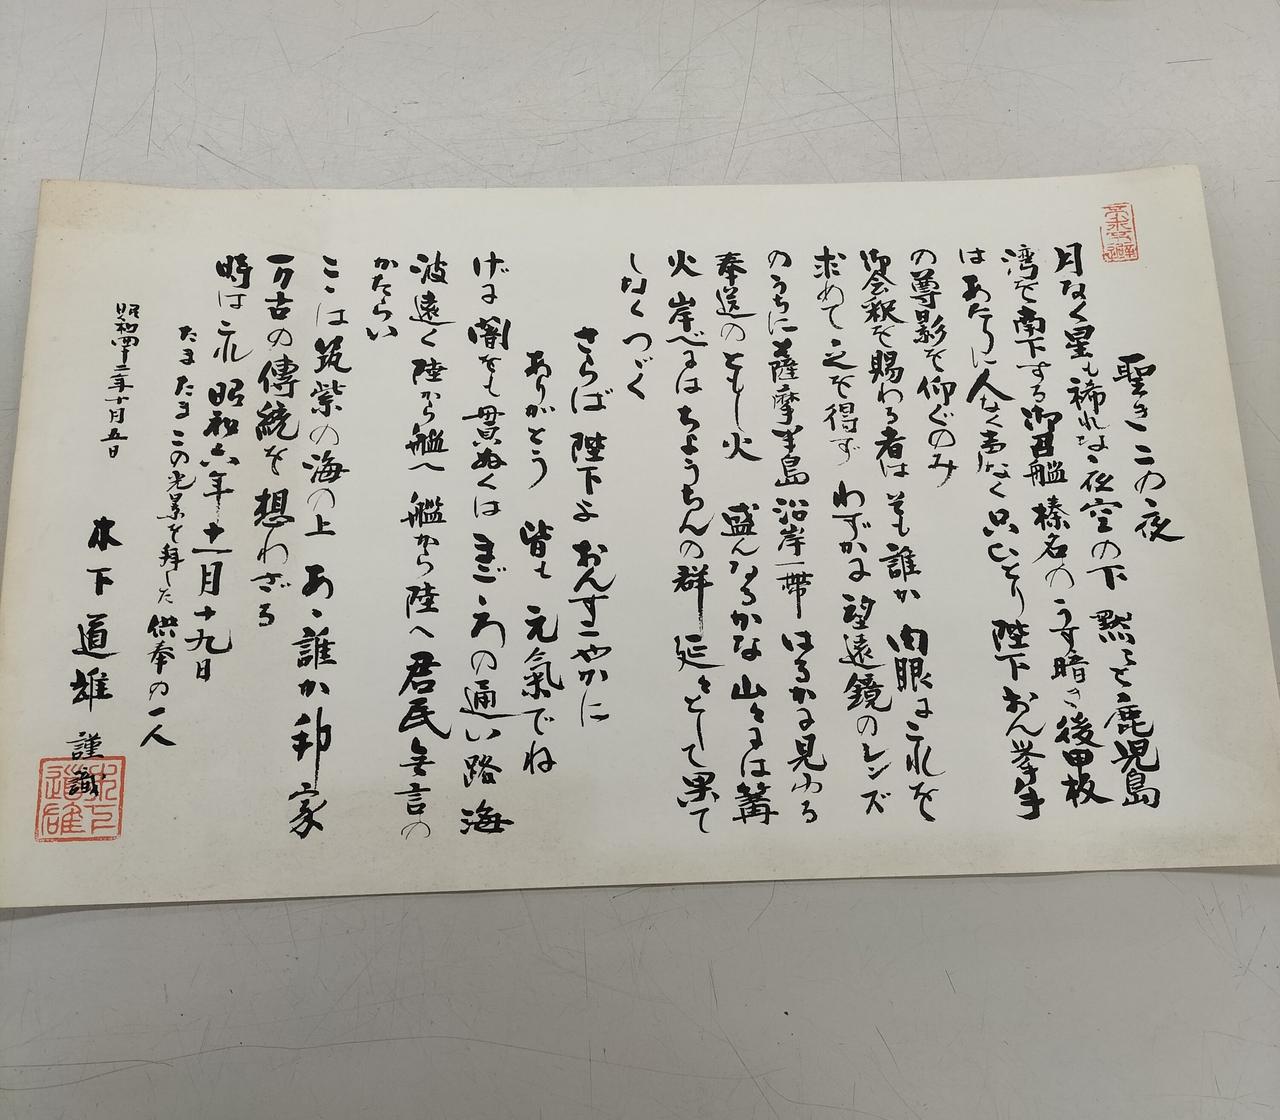 聖きこの夜
月なく星も稀れな夜空の下 黙々と鹿児島
湾を南下する御召艦榛名のうす暗き後甲板
はあたりに人なく声なく只ひとり陛下おん挙手
の尊影を仰ぐのみ
御会釈を賜わる者はそも誰か 肉眼はこれを
求めて之を得ず わずかに望遠鏡のレンズ
のうちに薩摩半島沿岸一帯 はるかに見ゆる
奉送のともし火 盛んなるかな 山々には篝
火 岸べにはちょうちんの群 延々として果て
しなくつづく
さらば 陛下よ おんすこやかに
ありがとう 皆も 元氣でね
げに闇をも貫ぬくは まごころの通い路 海
波遠く 陸から艦へ 艦から陸へ 君民無言の
かたらい
ここは筑紫の海の上 あゝ誰か 我邦家
万古の傳統を想わざる
時はこれ 昭和六年十一月十九日
たまたまこの光景を拝した供奉の一人
昭和四十二年十月五日
木下道雄 謹識
木下道雄